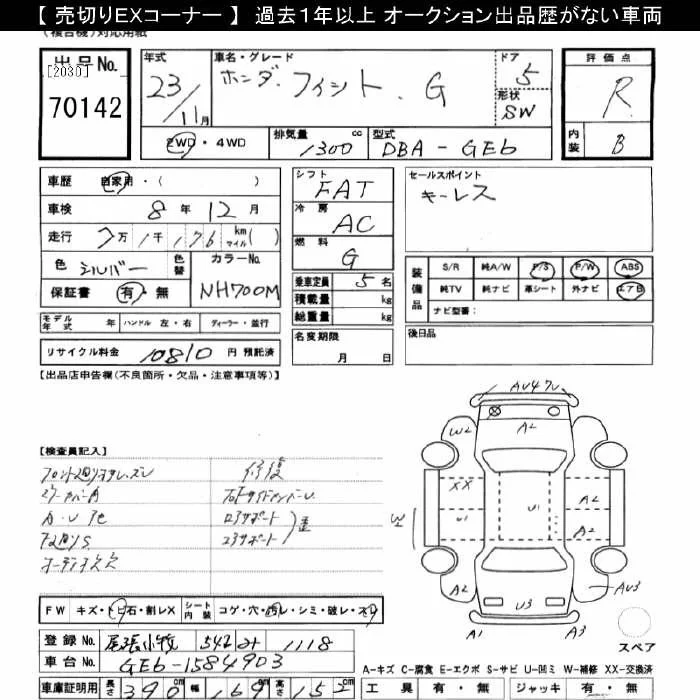 【 売切りEXコーナー 】 過去1年以上 オークション出品歴がない車両
(複合機)対応用紙
出品No.
[2030]
70142
年式
23/11月
車名・グレード
ホンダ フィット . G
ドア
5
形状
SW
評価点
R
内装
B
2WD・4WD
排気量
1300 cc
型式
DBA-GE6
車歴 自家用・( )
車検 8年 12月
走行 7万 1千 176 km マイル( )
色 シルバー
色替
カラーNo.
NH700M
保証書 有・無
シフト
FAT
冷房
AC
燃料
G
乗車定員 5名
積載量 kg
総重量 kg
名変期限
月 日
セールスポイント
キーレス
装備品
S/R 純A/W P/S P/W ABS
純TV 純ナビ 革シート 外ナビ エアB
ナビ型番:
後日品
モデル年式 年 ハンドル 左・右 ディーラー・並行
リサイクル料金 10810 円 預託済
【出品店申告欄(不良箇所・欠品・注意事項等)】
【検査員記入】
修復
オーディオ欠
FW キズ・トビ石・割レX
シート内装 コゲ・穴・汚レ・シミ・破レ・スレ
登録No. 尾張小牧 542 1118
車台No. GE6-1584903
車庫証明用 長さ 390cm 幅 169cm 高さ 152cm
W2
A2
XX
U1
U1
A2
A2
W
A2
AU3
U3
A1
A3
スペア
A-キズ C-腐食 E-エクボ S-サビ U-凹ミ W-補修 XX-交換済
工具 有・無 ジャッキ 有・無